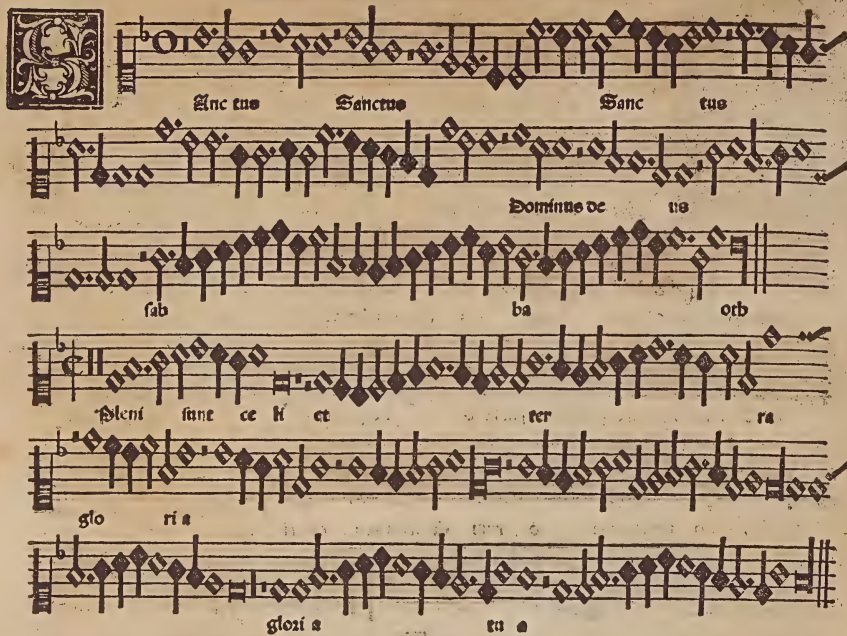 SAnc tus Sanctus Sanc tus
Dominus de us
sab ba oth
Pleni sunt ce li et ter ra
glo ri a
glori a tu a